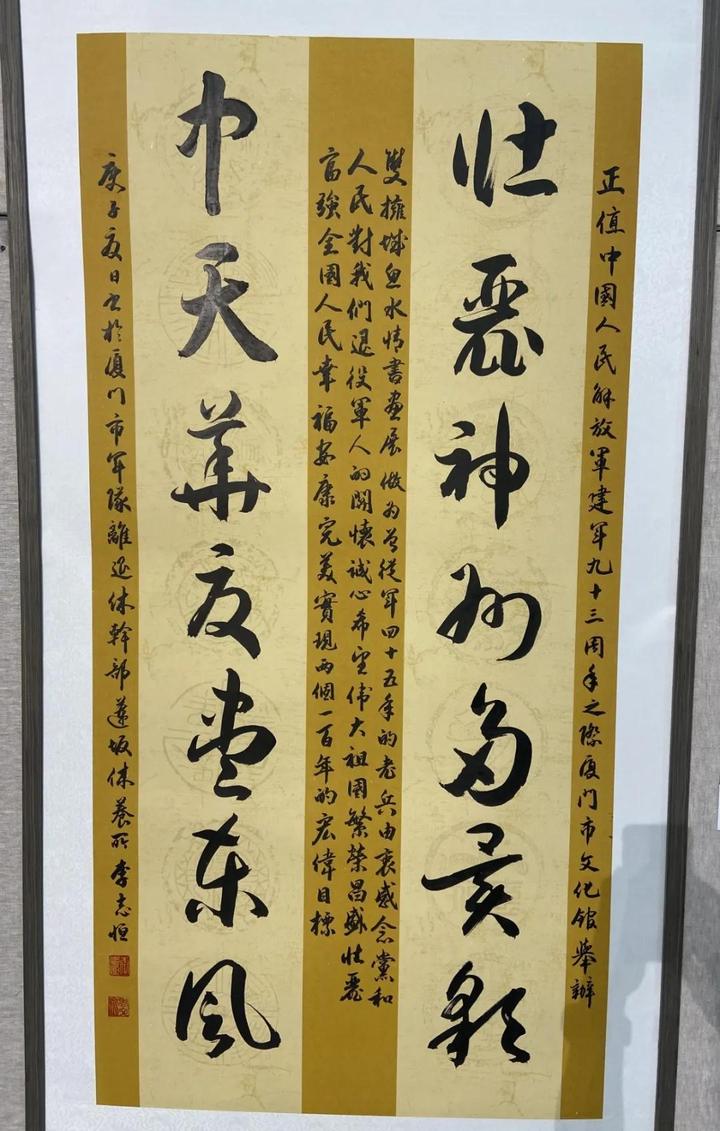 正值中國人民解放軍建军九十三周年之際厦门市文化馆舉辦
壮麗神州多異彩
雙擁城鱼水情書画展做为曾從军四十五年的老兵由衷感念黨和
人民對我們退役軍人的関懷诚心希望伟大祖國繁荣昌盛壮麗
富強全國人民幸福安康完美實現两個一百年的宏偉目標
中天華夏盡東風
庚子夏日书於厦门市军隊離退休幹部蓮坂休養所李志恒